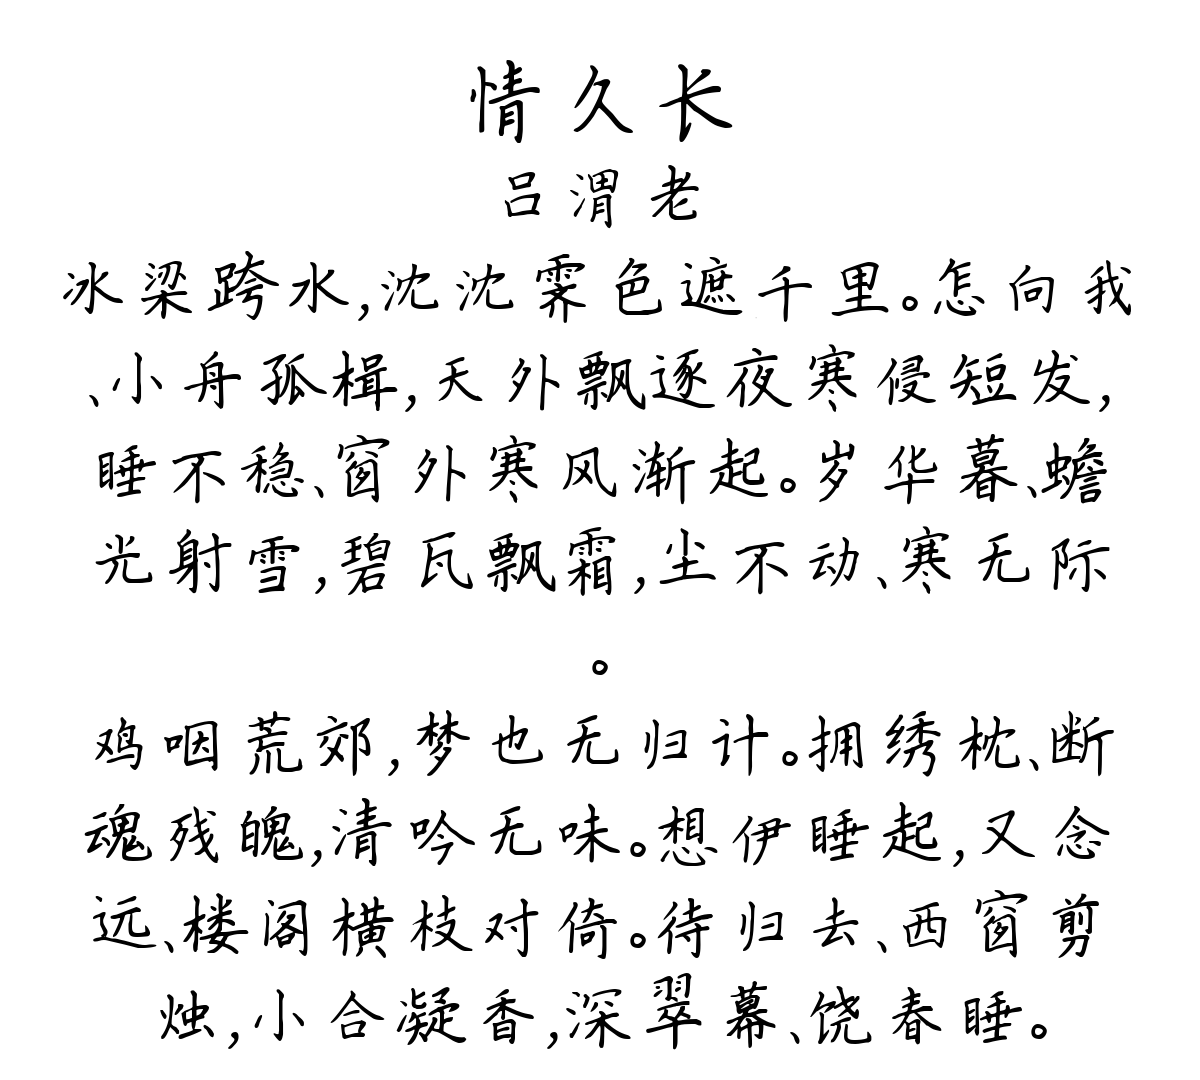 情久长
吕渭老
冰梁跨水,沈沈霁色遮千里。怎向我
、小舟孤楫,天外飘逐夜寒侵短发,
睡不稳、窗外寒风渐起。岁华暮、蟾
光射雪,碧瓦飘霜,尘不动、寒无际
。
鸡咽荒郊,梦也无归计。拥绣枕、断
魂残魄,清吟无味。想伊睡起,又念
远、楼阁横枝对倚。待归去、西窗剪
烛,小合凝香,深翠幕、饶春睡。